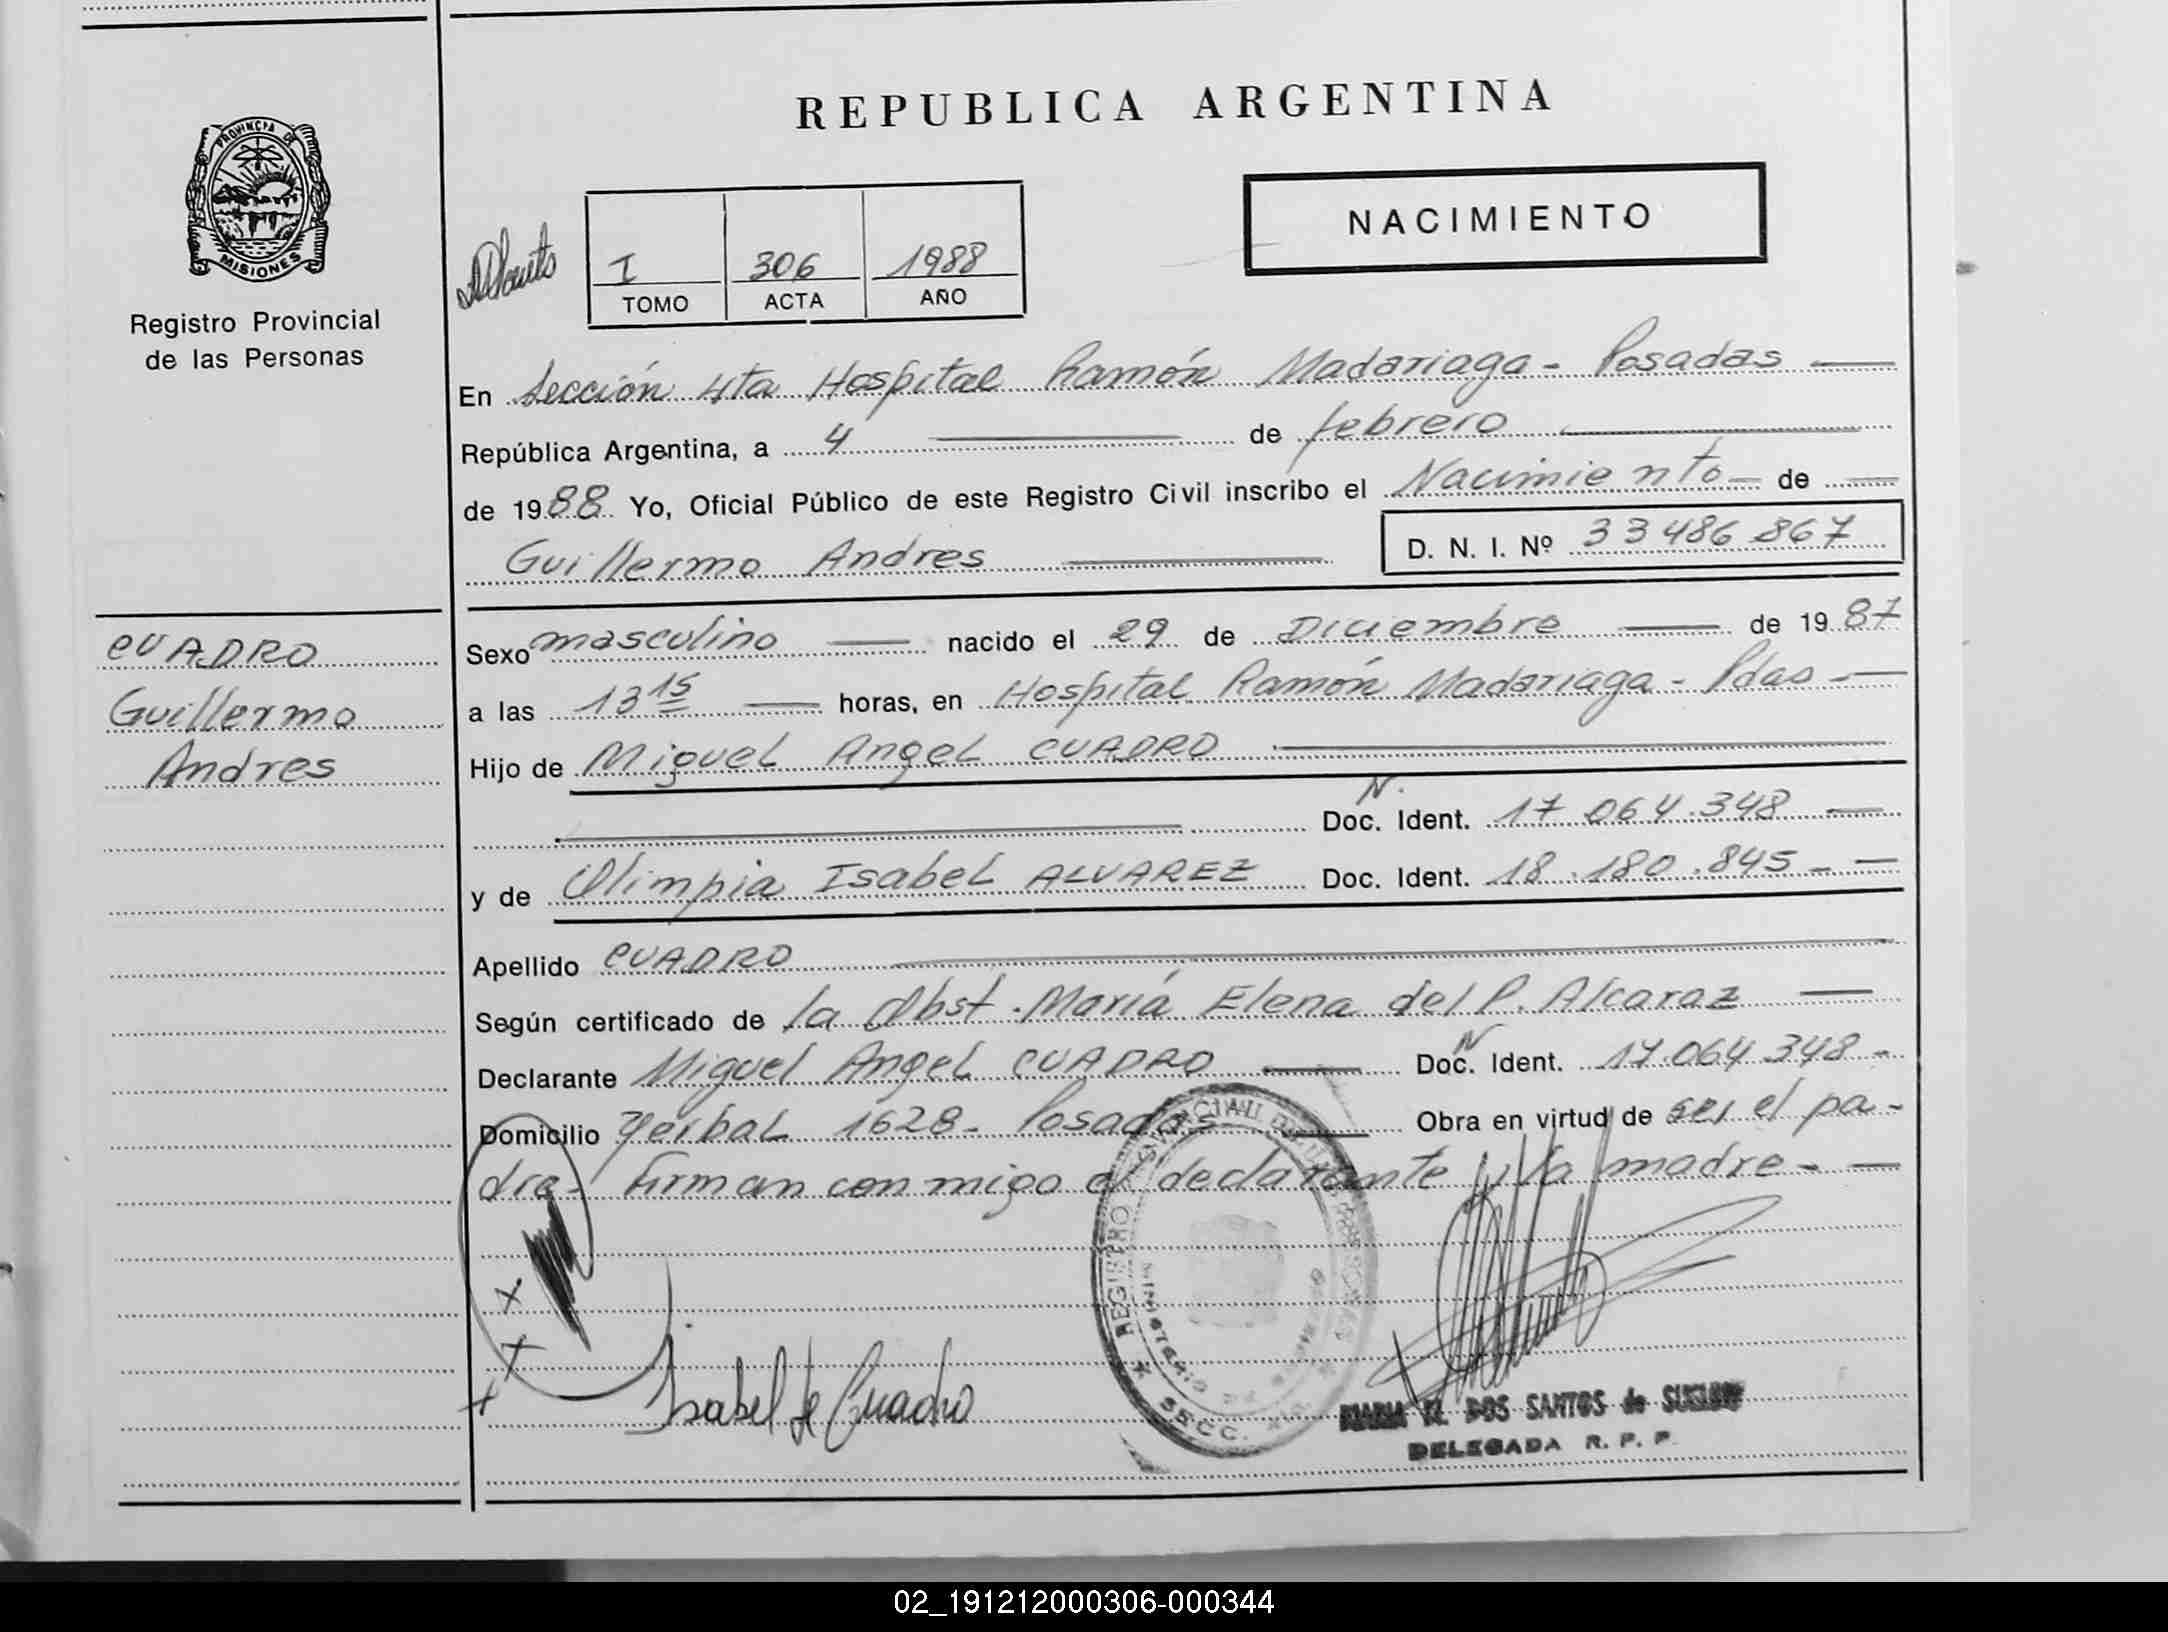 REPUBLICA ARGENTINA
PROVINCIA DE
MISIONES
Registro Provincial
de las Personas
NACIMIENTO
I 306 1988
TOMO ACTA AÑO
En Sección 4ta Hospital Ramón Madariaga - Posadas
República Argentina, a 4 de febrero
de 1988 Yo, Oficial Público de este Registro Civil inscribo el Nacimiento de
Guillermo Andres D. N. I. Nº 33486867
CUADRO
Guillermo
Andres
Sexo masculino nacido el 29 de Diciembre de 1987
a las 13 15 horas, en Hospital Ramón Madariaga - Pdas
Hijo de Miguel Angel CUADRO
N.
Doc. Ident. 17 064.348
y de Olimpia Isabel ALVAREZ Doc. Ident. 18.180.845
Apellido CUADRO
Según certificado de la Obst. María Elena del P. Alcaraz
N
Declarante Miguel Angel CUADRO Doc. Ident. 17.064 348 -
Domicilio Yerbal 1628 - Posadas Obra en virtud de ser el pa-
dre - Firman conmigo el declarante y la madre -
REGISTRO PROVINCIAL DE LAS PERSONAS
MINISTERIO DE
SECC.
Isabel de Cuadro
MARIA DOS SANTOS de
DELEGADA R. P. P.
02_191212000306-000344